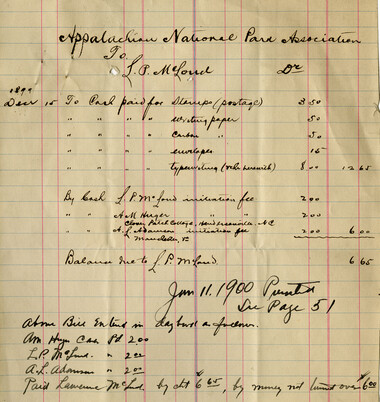 Appalachian National Park Association
To
L. P. McLoud Dr
1899
Decr 15 To Cash paid for Stamps (postage) 3 50
" " " " writing paper 50
" " " " carbon " 50
" " " " envelopes 15
" " " " typewriting 8 00 12 65
By Cash L. P. McLoud initiation fee 2 00
" " A. M. Huger " " 2 00
Hendersonville. N.C
" " A. L. Adamson initiation fee 2 00 6 00
Manchester,
Balance due to L. P. McLoud 6 65
Jan 11. 1900
See Page 51
Above Bill Entered in daybook as follows.
Am Huger Cash Pd 2.00
L. P. McLoud. " 2.00
A. L. Adamson " 2.00
Paid Lawrence McLoud. by cht $6 65, by money not turned over $6.00